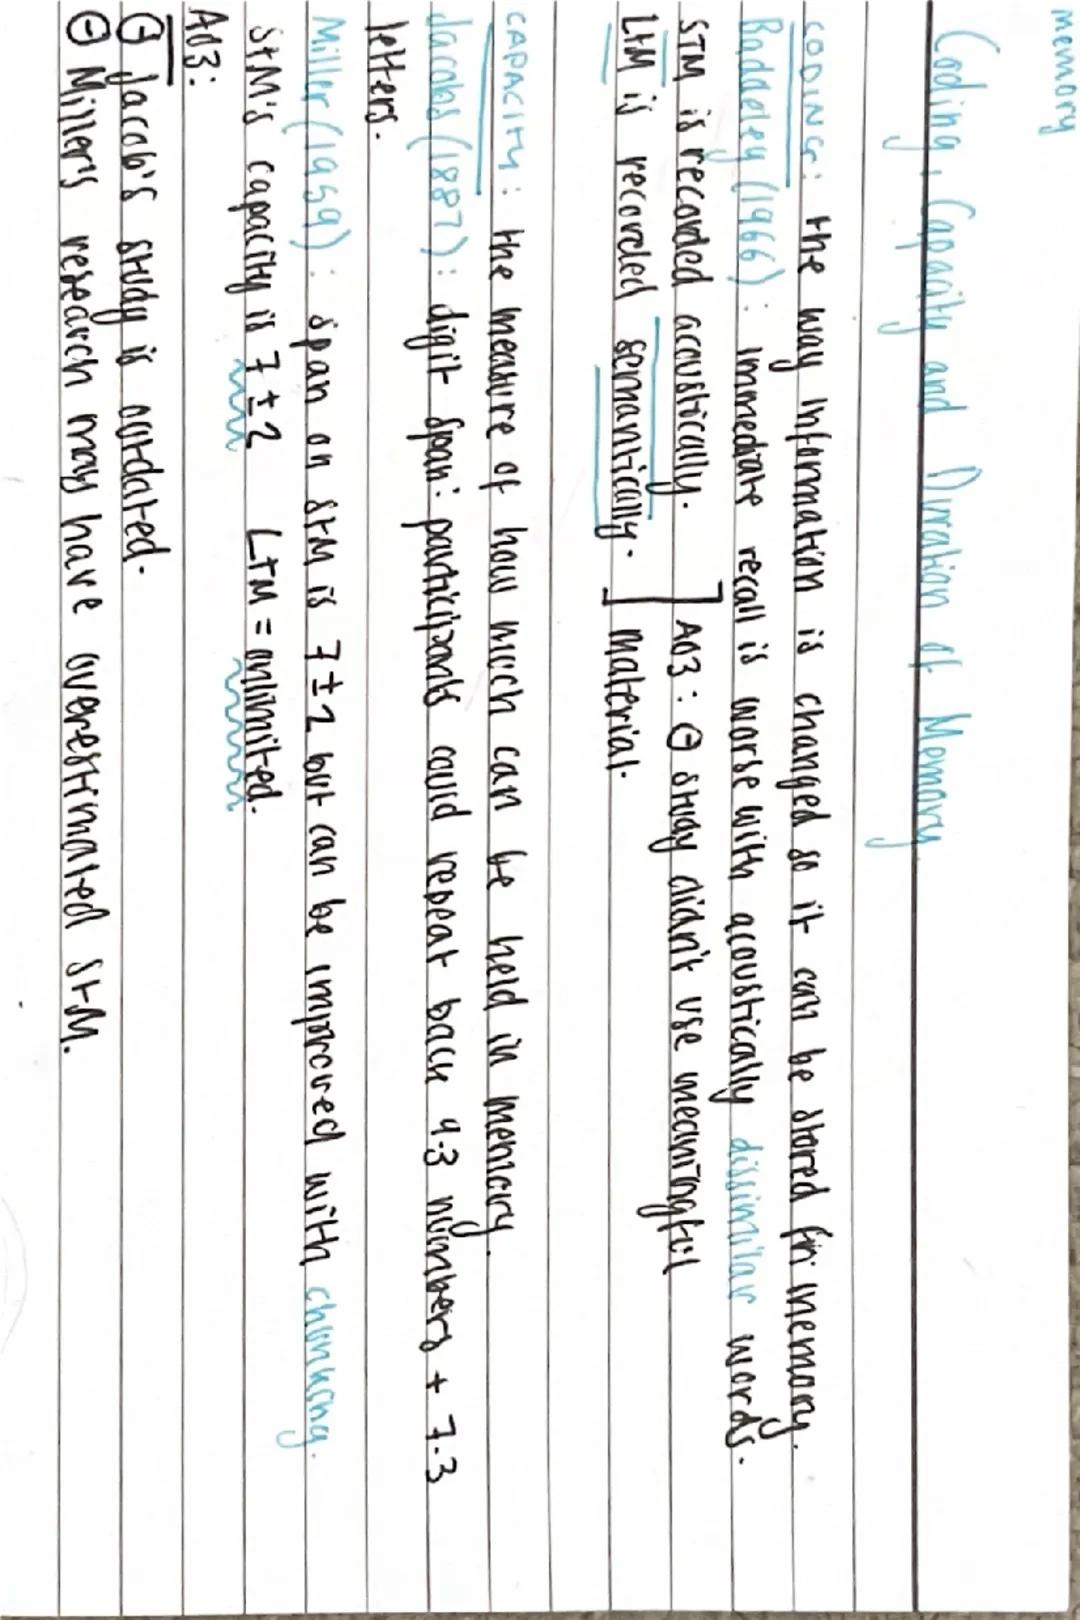 memory
Coding, Capacity and Duration of Memory
CODING: the way information is changed so it can be stored in memory.
Baddeley (1966): immediate recall is worse with acoustically dissimilar words.
STM is recorded acoustically. ] AO3: ⊖ study didn't use meaningful
LTM is recorded semantically. ] material.
CAPACITY: the measure of how much can be held in memory.
Jacobs (1887): digit span: participants could repeat back 9.3 numbers + 7.3
letters.
Miller (1959): span on STM is 7±2 but can be improved with chunking.
STM's capacity is 7±2 LTM = unlimited.
AO3:
⊖ Jacob's study is outdated.
⊖ Miller's research may have overestimated STM.